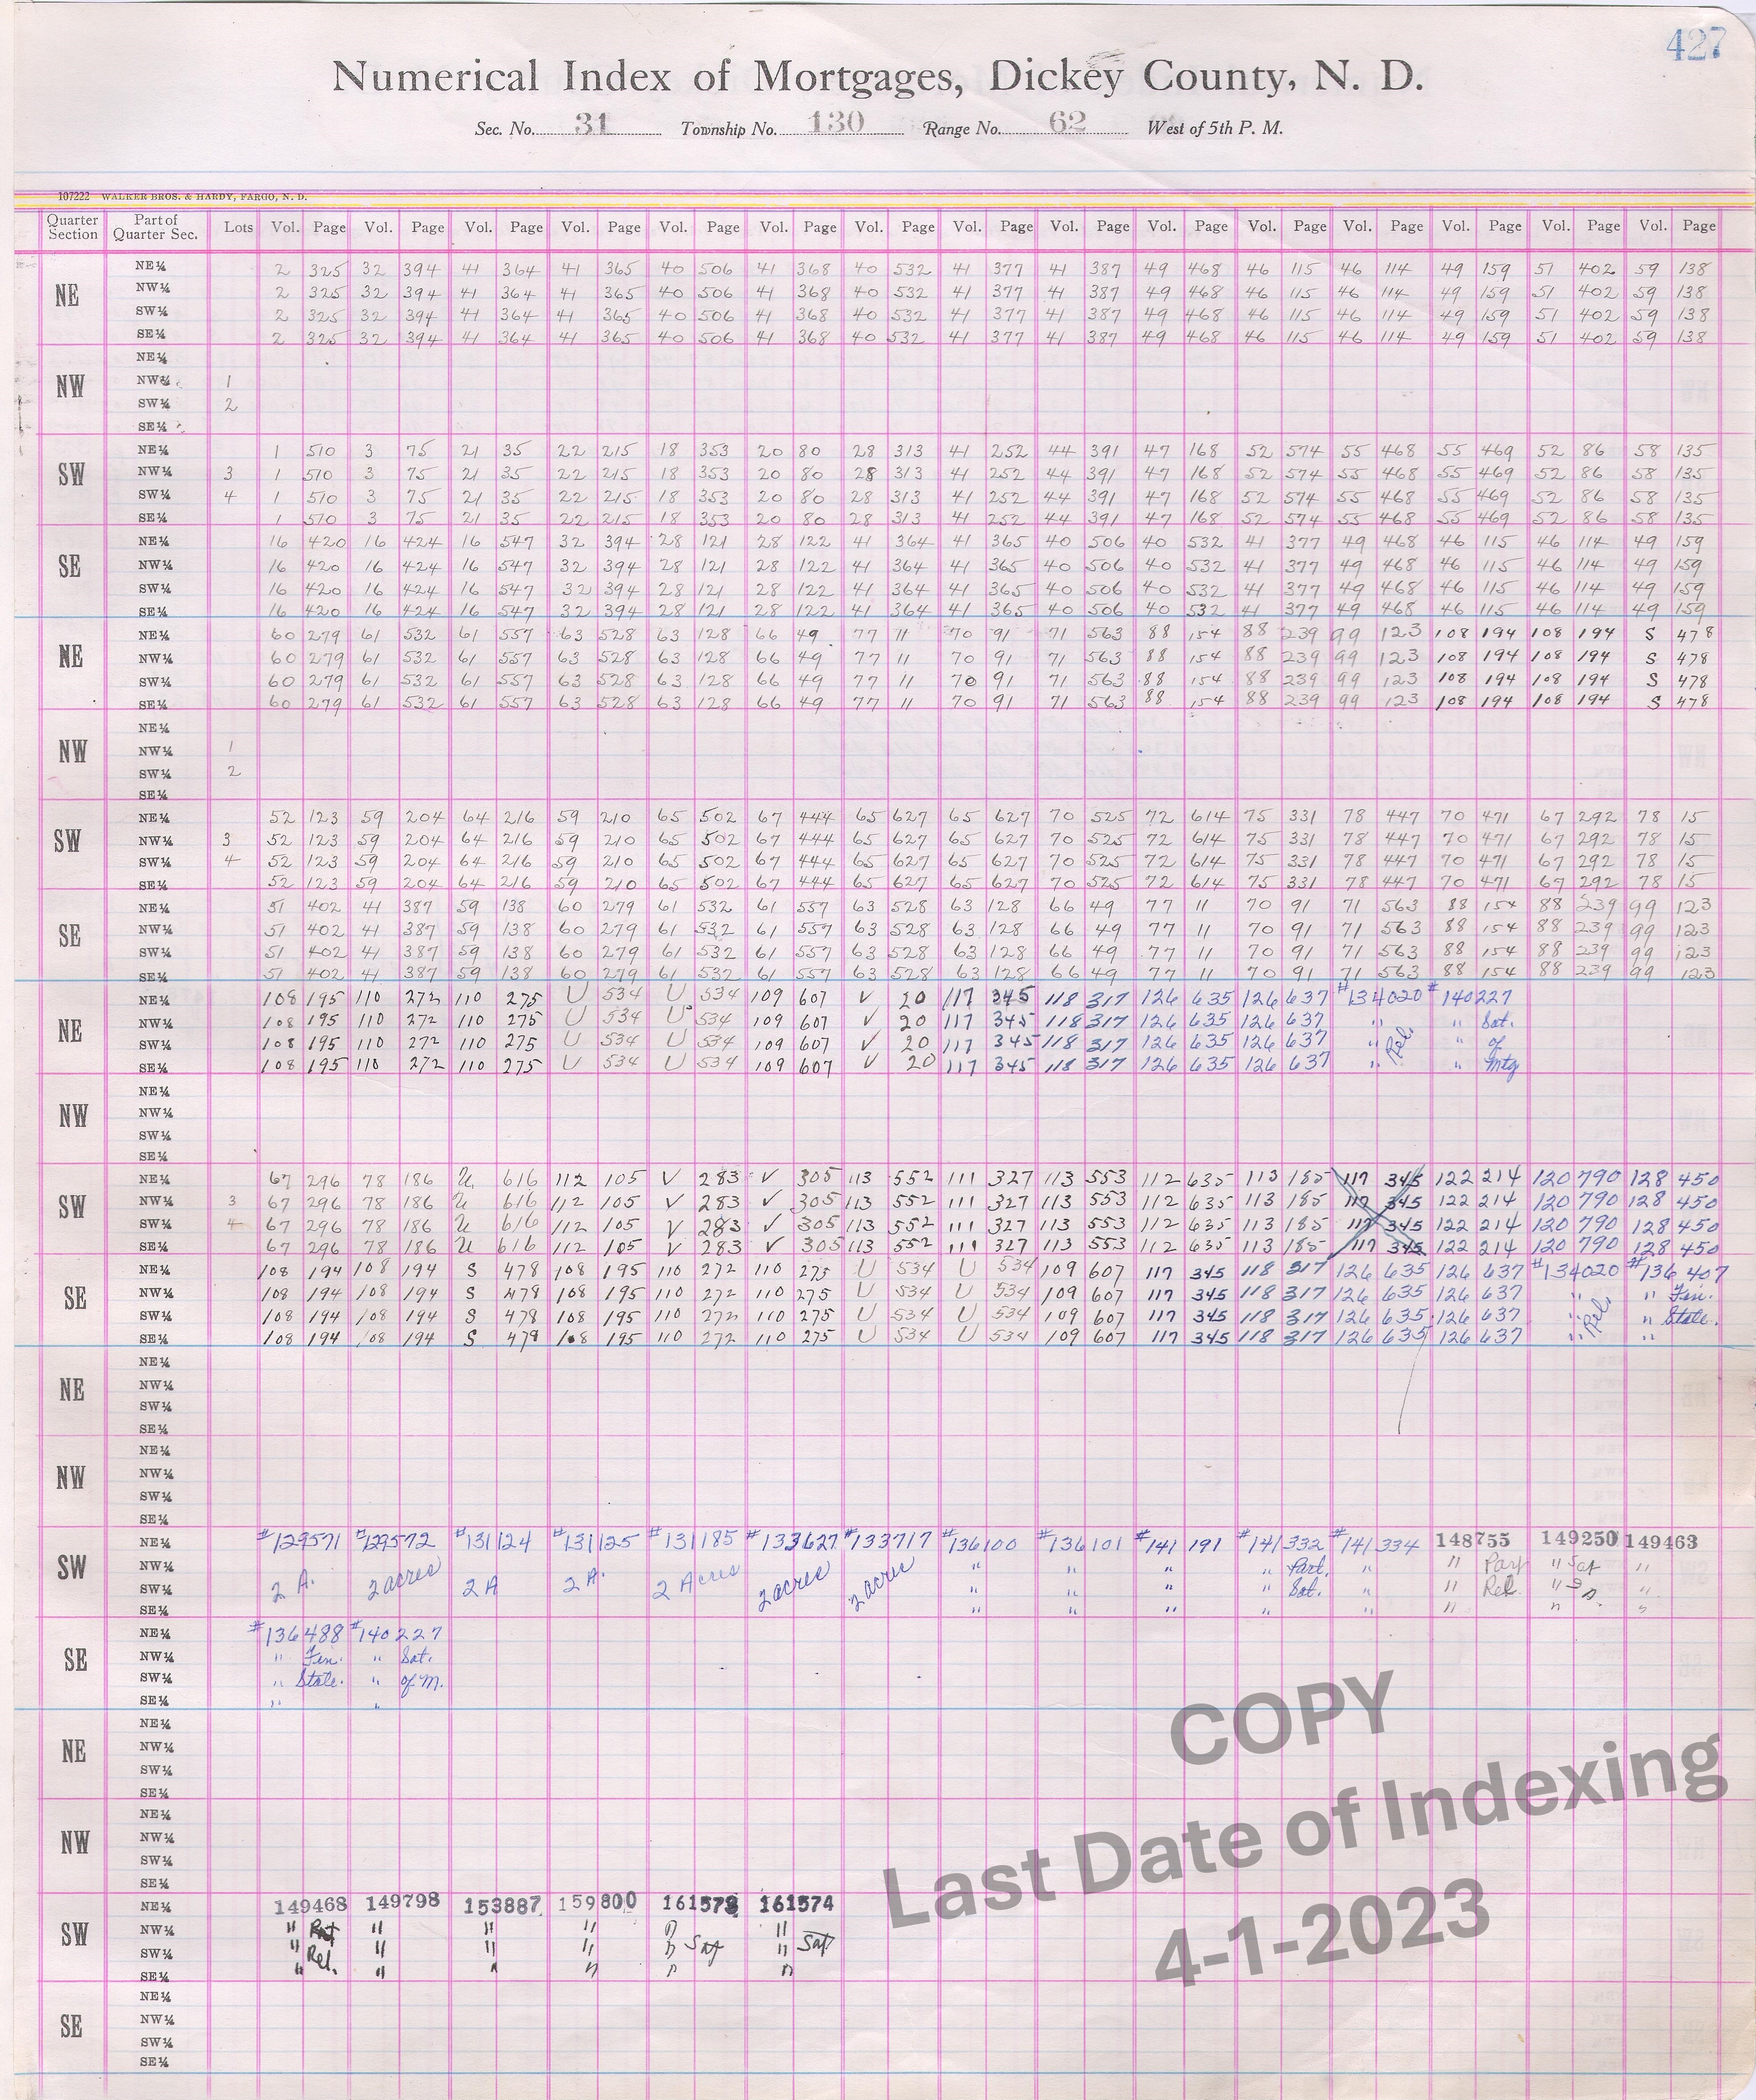 427
Numerical Index of Mortgages, Dickey County, N. D.
Sec. No. 31 Township No. 130 Range No. 62 West of 5th P. M.
107222 WALKER BROS. & HARDY, FARGO, N. D.
Quarter Section Part of Quarter Sec. Lots Vol. Page Vol. Page Vol. Page Vol. Page Vol. Page Vol. Page Vol. Page Vol. Page Vol. Page Vol. Page Vol. Page Vol. Page Vol. Page Vol. Page Vol. Page
NE NE¼ 2 325 32 394 41 364 41 365 40 506 41 368 40 532 41 377 41 387 49 468 46 115 46 114 49 159 51 402 59 138
NW¼ 2 325 32 394 41 364 41 365 40 506 41 368 40 532 41 377 41 387 49 468 46 115 46 114 49 159 51 402 59 138
SW¼ 2 325 32 394 41 364 41 365 40 506 41 368 40 532 41 377 41 387 49 468 46 115 46 114 49 159 51 402 59 138
SE¼ 2 325 32 394 41 364 41 365 40 506 41 368 40 532 41 377 41 387 49 468 46 115 46 114 49 159 51 402 59 138
NW NE¼
NW¼ 1
SW¼ 2
SE¼
SW NE¼ 1 510 3 75 21 35 22 215 18 353 20 80 28 313 41 252 44 391 47 168 52 574 55 468 55 469 52 86 58 135
NW¼ 3 1 510 3 75 21 35 22 215 18 353 20 80 28 313 41 252 44 391 47 168 52 574 55 468 55 469 52 86 58 135
SW¼ 4 1 510 3 75 21 35 22 215 18 353 20 80 28 313 41 252 44 391 47 168 52 574 55 468 55 469 52 86 58 135
SE¼ 1 510 3 75 21 35 22 215 18 353 20 80 28 313 41 252 44 391 47 168 52 574 55 468 55 469 52 86 58 135
SE NE¼ 16 420 16 424 16 547 32 394 28 121 28 122 41 364 41 365 40 506 40 532 41 377 49 468 46 115 46 114 49 159
NW¼ 16 420 16 424 16 547 32 394 28 121 28 122 41 364 41 365 40 506 40 532 41 377 49 468 46 115 46 114 49 159
SW¼ 16 420 16 424 16 547 32 394 28 121 28 122 41 364 41 365 40 506 40 532 41 377 49 468 46 115 46 114 49 159
SE¼ 16 420 16 424 16 547 32 394 28 121 28 122 41 364 41 365 40 506 40 532 41 377 49 468 46 115 46 114 49 159
NE NE¼ 60 279 61 532 61 557 63 528 63 128 66 49 77 11 70 91 71 563 88 154 88 239 99 123 108 194 108 194 S 478
NW¼ 60 279 61 532 61 557 63 528 63 128 66 49 77 11 70 91 71 563 88 154 88 239 99 123 108 194 108 194 S 478
SW¼ 60 279 61 532 61 557 63 528 63 128 66 49 77 11 70 91 71 563 88 154 88 239 99 123 108 194 108 194 S 478
SE¼ 60 279 61 532 61 557 63 528 63 128 66 49 77 11 70 91 71 563 88 154 88 239 99 123 108 194 108 194 S 478
NW NE¼
NW¼ 1
SW¼ 2
SE¼
SW NE¼ 52 123 59 204 64 216 59 210 65 502 67 444 65 627 65 627 70 525 72 614 75 331 78 447 70 471 67 292 78 15
NW¼ 3 52 123 59 204 64 216 59 210 65 502 67 444 65 627 65 627 70 525 72 614 75 331 78 447 70 471 67 292 78 15
SW¼ 4 52 123 59 204 64 216 59 210 65 502 67 444 65 627 65 627 70 525 72 614 75 331 78 447 70 471 67 292 78 15
SE¼ 52 123 59 204 64 216 59 210 65 502 67 444 65 627 65 627 70 525 72 614 75 331 78 447 70 471 67 292 78 15
SE NE¼ 51 402 41 387 59 138 60 279 61 532 61 557 63 528 63 128 66 49 77 11 70 91 71 563 88 154 88 239 99 123
NW¼ 51 402 41 387 59 138 60 279 61 532 61 557 63 528 63 128 66 49 77 11 70 91 71 563 88 154 88 239 99 123
SW¼ 51 402 41 387 59 138 60 279 61 532 61 557 63 528 63 128 66 49 77 11 70 91 71 563 88 154 88 239 99 123
SE¼ 51 402 41 387 59 138 60 279 61 532 61 557 63 528 63 128 66 49 77 11 70 91 71 563 88 154 88 239 99 123
NE NE¼ 108 195 110 272 110 275 U 534 U 534 109 607 V 20 117 345 118 317 126 635 126 637 #134020 #140227
NW¼ 108 195 110 272 110 275 U 534 U 534 109 607 V 20 117 345 118 317 126 635 126 637 " " Sat.
SW¼ 108 195 110 272 110 275 U 534 U 534 109 607 V 20 117 345 118 317 126 635 126 637 " Rel. " of
SE¼ 108 195 110 272 110 275 U 534 U 534 109 607 V 20 117 345 118 317 126 635 126 637 " " Mtg
NW NE¼
NW¼
SW¼
SE¼
SW NE¼ 67 296 78 186 U 616 112 105 V 283 V 305 113 552 111 327 113 553 112 635 113 185 117 345 122 214 120 790 128 450
NW¼ 3 67 296 78 186 U 616 112 105 V 283 V 305 113 552 111 327 113 553 112 635 113 185 117 345 122 214 120 790 128 450
SW¼ 4 67 296 78 186 U 616 112 105 V 283 V 305 113 552 111 327 113 553 112 635 113 185 117 345 122 214 120 790 128 450
SE¼ 67 296 78 186 U 616 112 105 V 283 V 305 113 552 111 327 113 553 112 635 113 185 117 345 122 214 120 790 128 450
SE NE¼ 108 194 108 194 S 478 108 195 110 272 110 275 U 534 U 534 109 607 117 345 118 317 126 635 126 637 #134020 #136407
NW¼ 108 194 108 194 S 478 108 195 110 272 110 275 U 534 U 534 109 607 117 345 118 317 126 635 126 637 " " Fin.
SW¼ 108 194 108 194 S 478 108 195 110 272 110 275 U 534 U 534 109 607 117 345 118 317 126 635 126 637 " Rel. " State.
SE¼ 108 194 108 194 S 478 108 195 110 272 110 275 U 534 U 534 109 607 117 345 118 317 126 635 126 637 " "
NE NE¼
NW¼
SW¼
SE¼
NW NE¼
NW¼
SW¼
SE¼
SW NE¼ #129571 #129572 #131124 #131125 #131185 #133627 #133717 #136100 #136101 #141191 #141332 #141334 148755 149250 149463
NW¼ " " " " Part. " " Part " Sat "
SW¼ 2 A. 2 acres 2 A 2 A. 2 Acres 2 acres 2 acres " " " " Sat. " " Rel. " "
SE¼ " " " " " " " "
SE NE¼ #136488 #140227
NW¼ " Fin. " Sat.
SW¼ " State. " of M.
SE¼ " "
NE NE¼
NW¼
SW¼
SE¼
NW NE¼
NW¼
SW¼
SE¼
SW NE¼ 149468 149798 153887 159800 161573 161574
NW¼ " " " " " "
SW¼ " Rel. " " " " Sat " Sat
SE¼ " " " " " "
SE NE¼
NW¼
SW¼
SE¼
COPY
Last Date of Indexing
4-1-2023